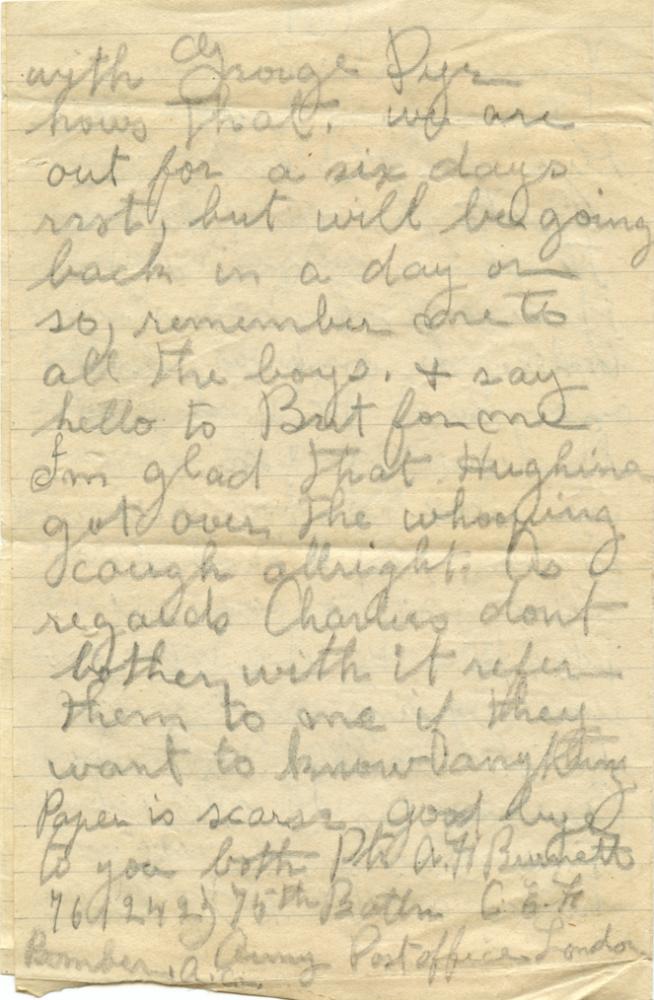 with George Dyr
hows that. we are
out for a six days
rest, but will be going
back in a day or
so, remember me to
all the boys. + say
hello to Bert for me
I'm glad that Hughina
got over the whooping
cough allright. As
regards Charlies dont
bother with it refer
them to me if they
want to know anything
Paper is scarse good bye
to you both Pte A. H Burnett
75th Battn C. E. F
Bomber. Army Post office London